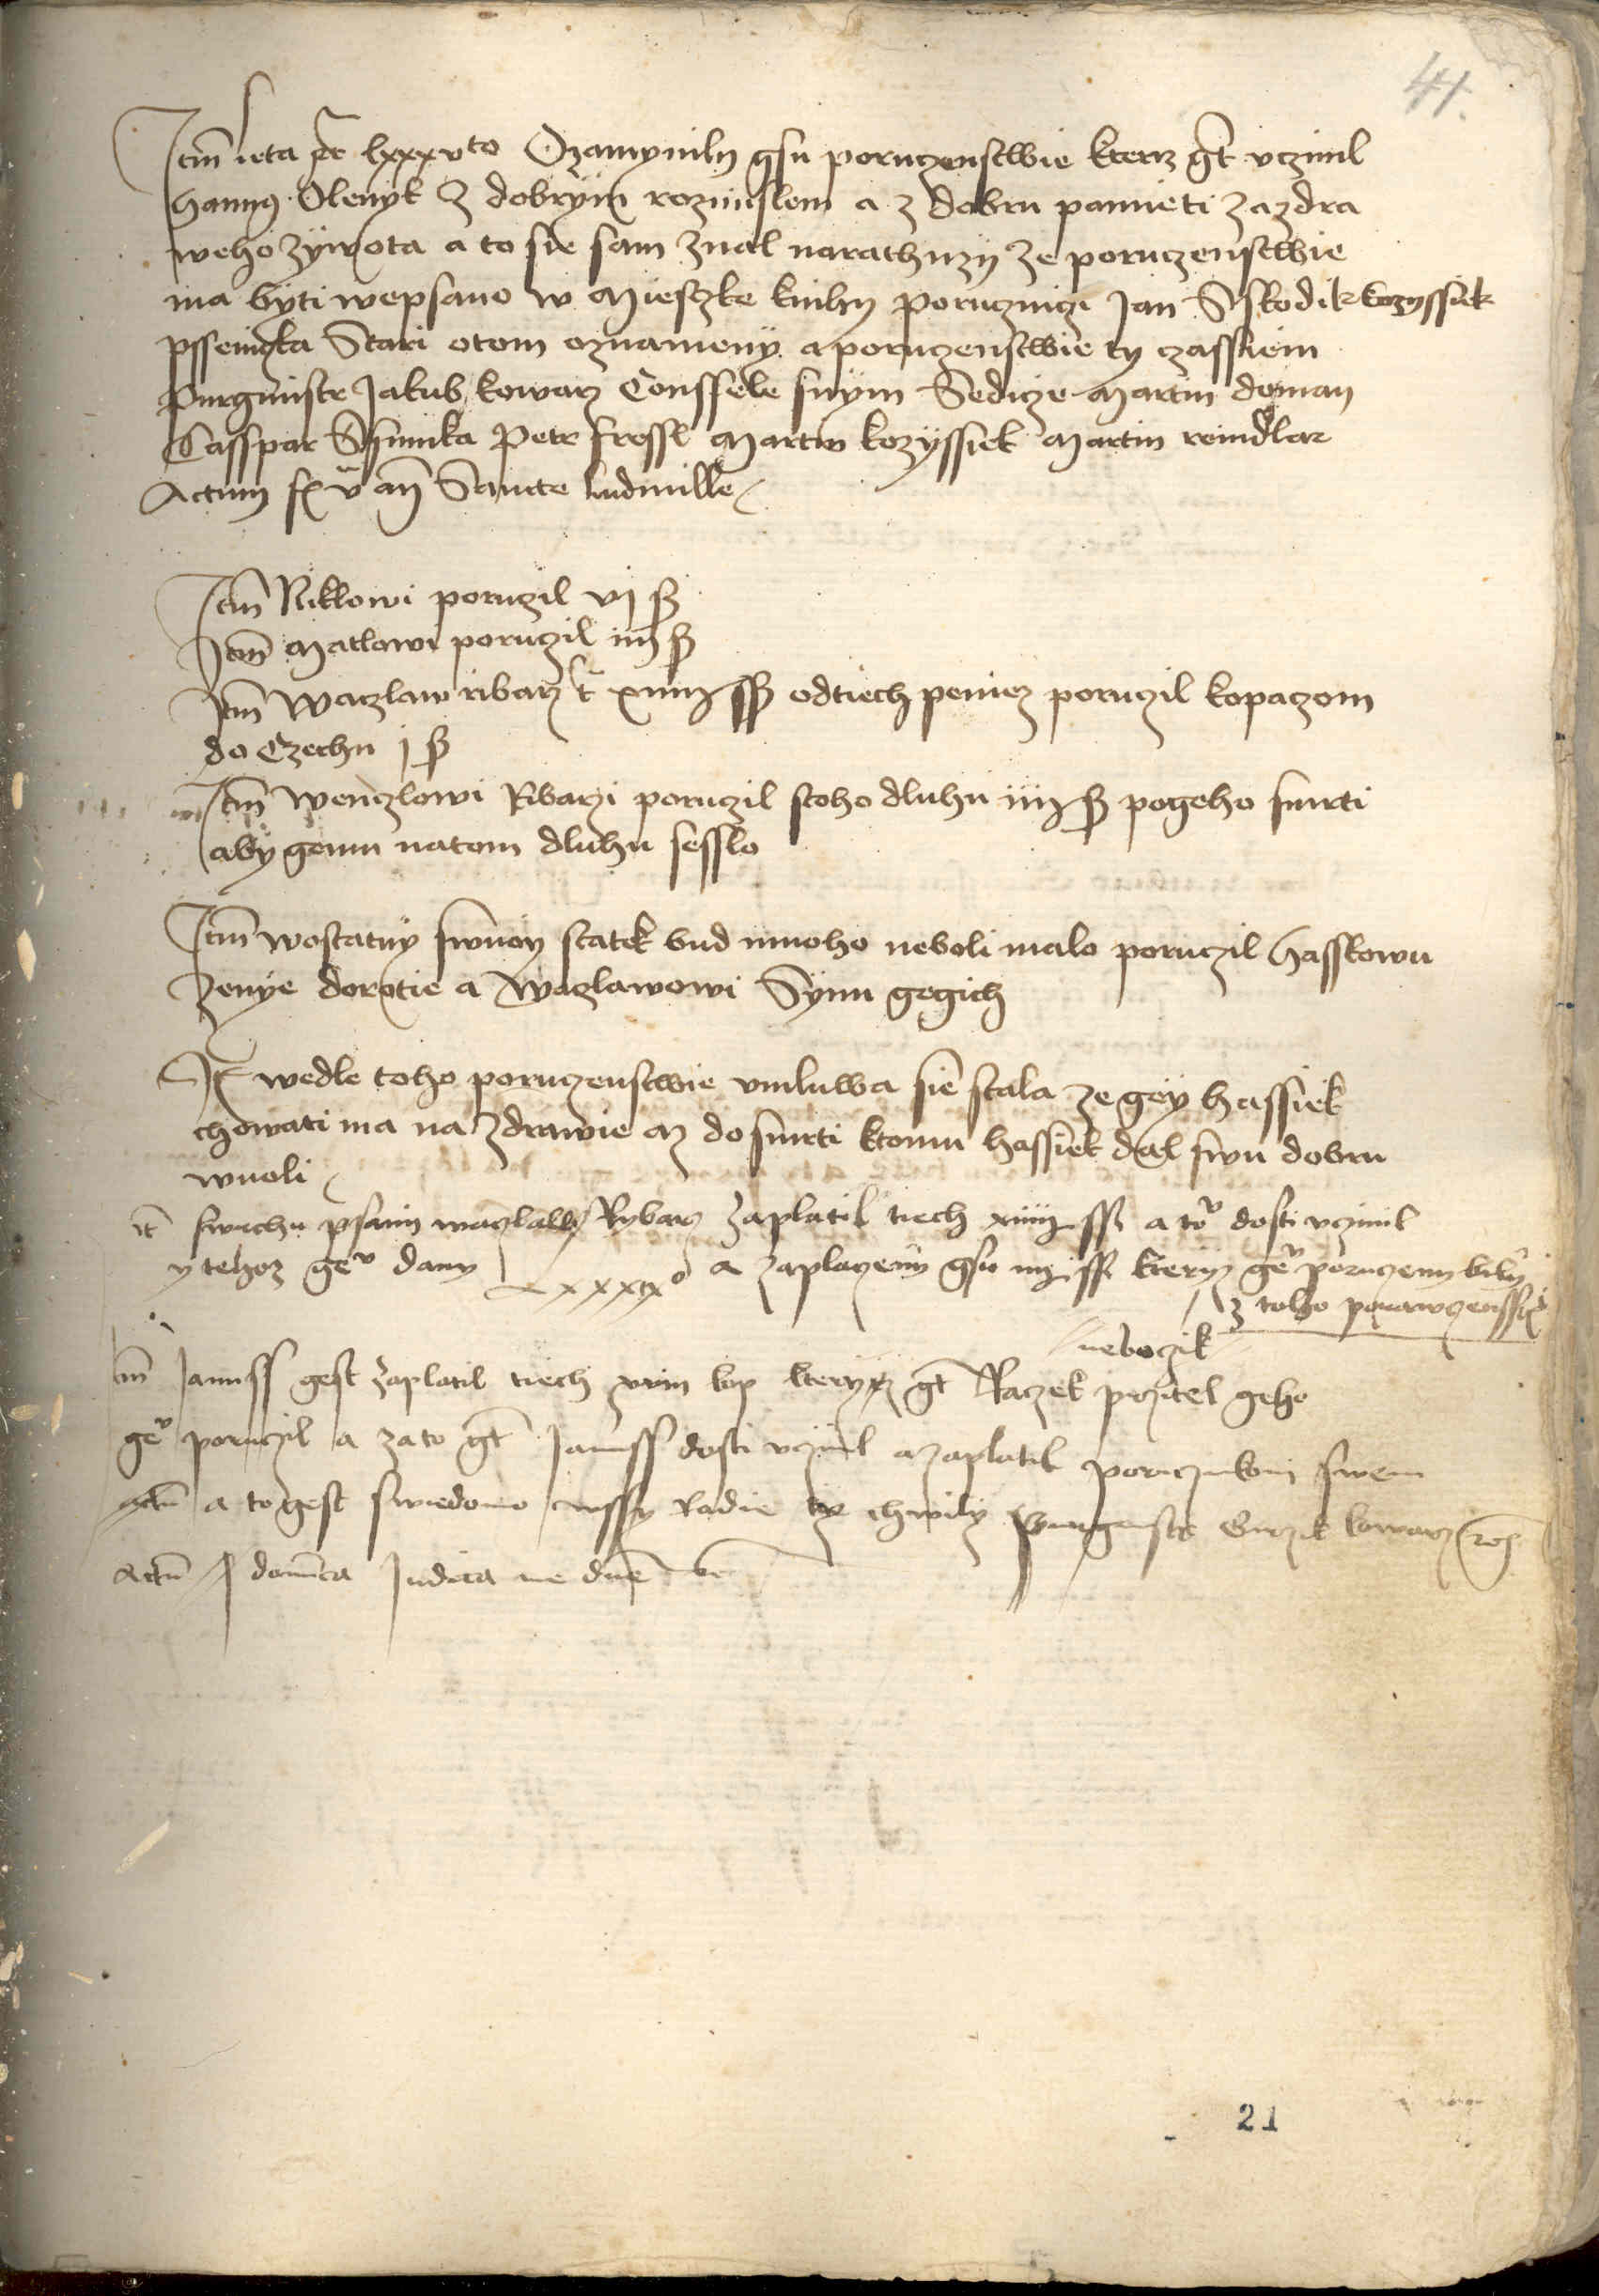 41.
Itm leta etc lxxxvto Oznamynily gsu poruczenstwie kterz gt vczinil
Hannus Olenyk Z dobrym rozmislem a z dobru pamieti za zdra
weho zywota a to sie sam znal na rathuzy ze poruczenstwie
ma byti wepsano w Miesczke knihy poruczniczi Jan Sskodik kozyssiek
pssenicka Stari otom oznameny a poruczenstwie ty czassiem
Purgmistr Jakub kowarz Conssele snym Sedicze Martin doman
Casspar Ssimka Petr fressl Martin kozyssiek Martin reindlar
Actum f v an Sancte ludmille
Itm Niklowi poruczil vj ss
Itm Matlowi poruczil iiij ss
Itm Waczlaw ribarz t xiiij ss odtiech peniez poruczil kopaczom
do Czechu j ss
Itm Wenczlowi Ribarzi poruczil stoho dluhu iiij ss pogeho smrti
aby gemu natom dluhu sesslo
Itm wostatny swuoy statek bud mnoho neboli malo poruczil Hasskowu
Zenye dorotie a Waczlawowi Synu gegich
It wedle toho poruczenstwie vmluwa sie stala ze gey Hassiek
chowati ma na zdrawie az do smrti ktomu Hassiek dal swu dobru
wuoli
it swrchu psanij waczlaw Rybarz zaplatil tiech xiiij ss a to dosti vczinil
y tehoz geo dany lxxxxixo a zaplaczeny gsu iiij ss kteryz geo poruczeny bily
z toho
nebozik
Itm Januss gest zaplatil tiech xviij kop kteryz gt Raczek przitel geho
geo poruczil a za to gt Januss dosti vczinil a zaplatil porucznikom swem
a to gest swiedomo wssy Radie ty chwily Purgmistr Girzik kowarz
Actum domca Judica me dne
21